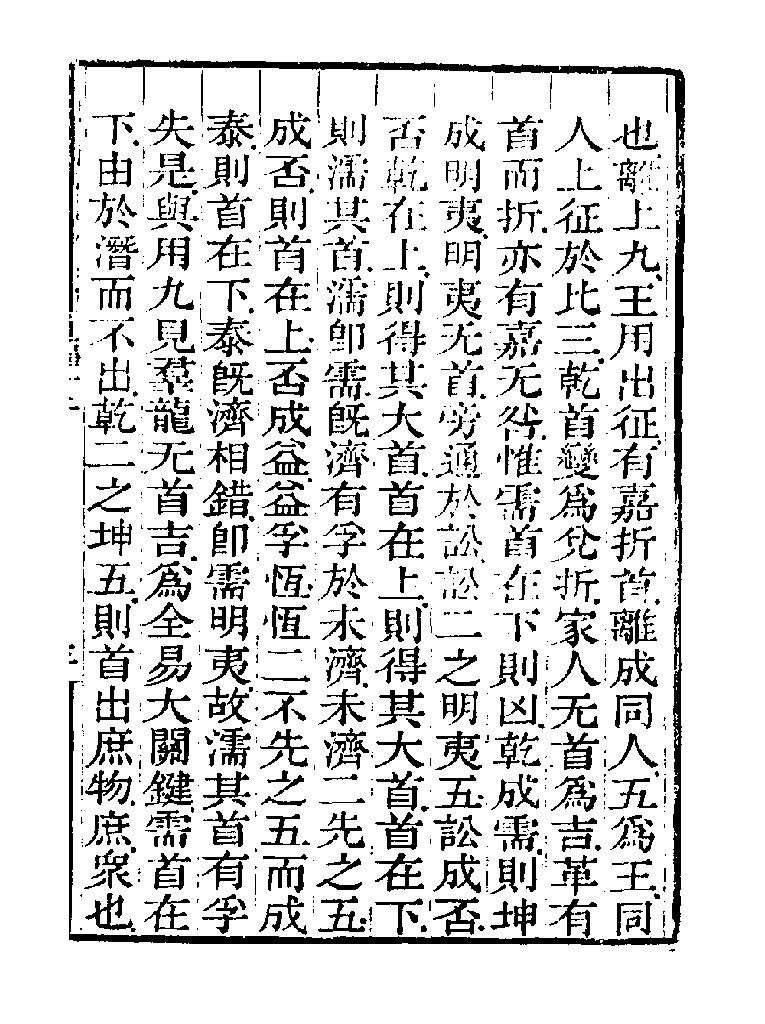 也離上九王用出征有嘉折首離成同人五爲王同
人上征於比三乾首變爲兌折家人无首爲吉革有
首而折亦有嘉无咎惟需首在下則凶乾成需則坤
成明夷明夷无首旁通於訟訟二之明夷五訟成否
否乾在上則得其大首首在上則得其大首首在下
則濡其首濡卽需旣濟有孚於未濟未濟二先之五
成否則首在上否成益益孚恆恆二不先之五而成
泰則首在下泰旣濟相錯卽需明夷故濡其首有孚
失是與用九見羣龍无首吉爲全易大關鍵需首在
下由於潛而不出乾二之坤五則首出庶物庶衆也